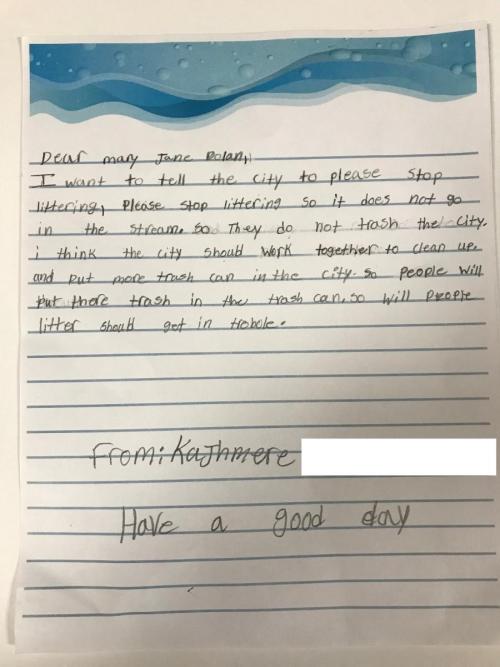 Dear mary Jane Dolan,
I want to tell the city to please stop
littering, Please stop littering so it does not go
in the stream. so They do not trash the city.
i think the city should work together to clean up.
and put more trash can in the city. so people will
put there trash in the trash can. so will people
litter should get in trobole.
From: Kajhmere
Have a good day